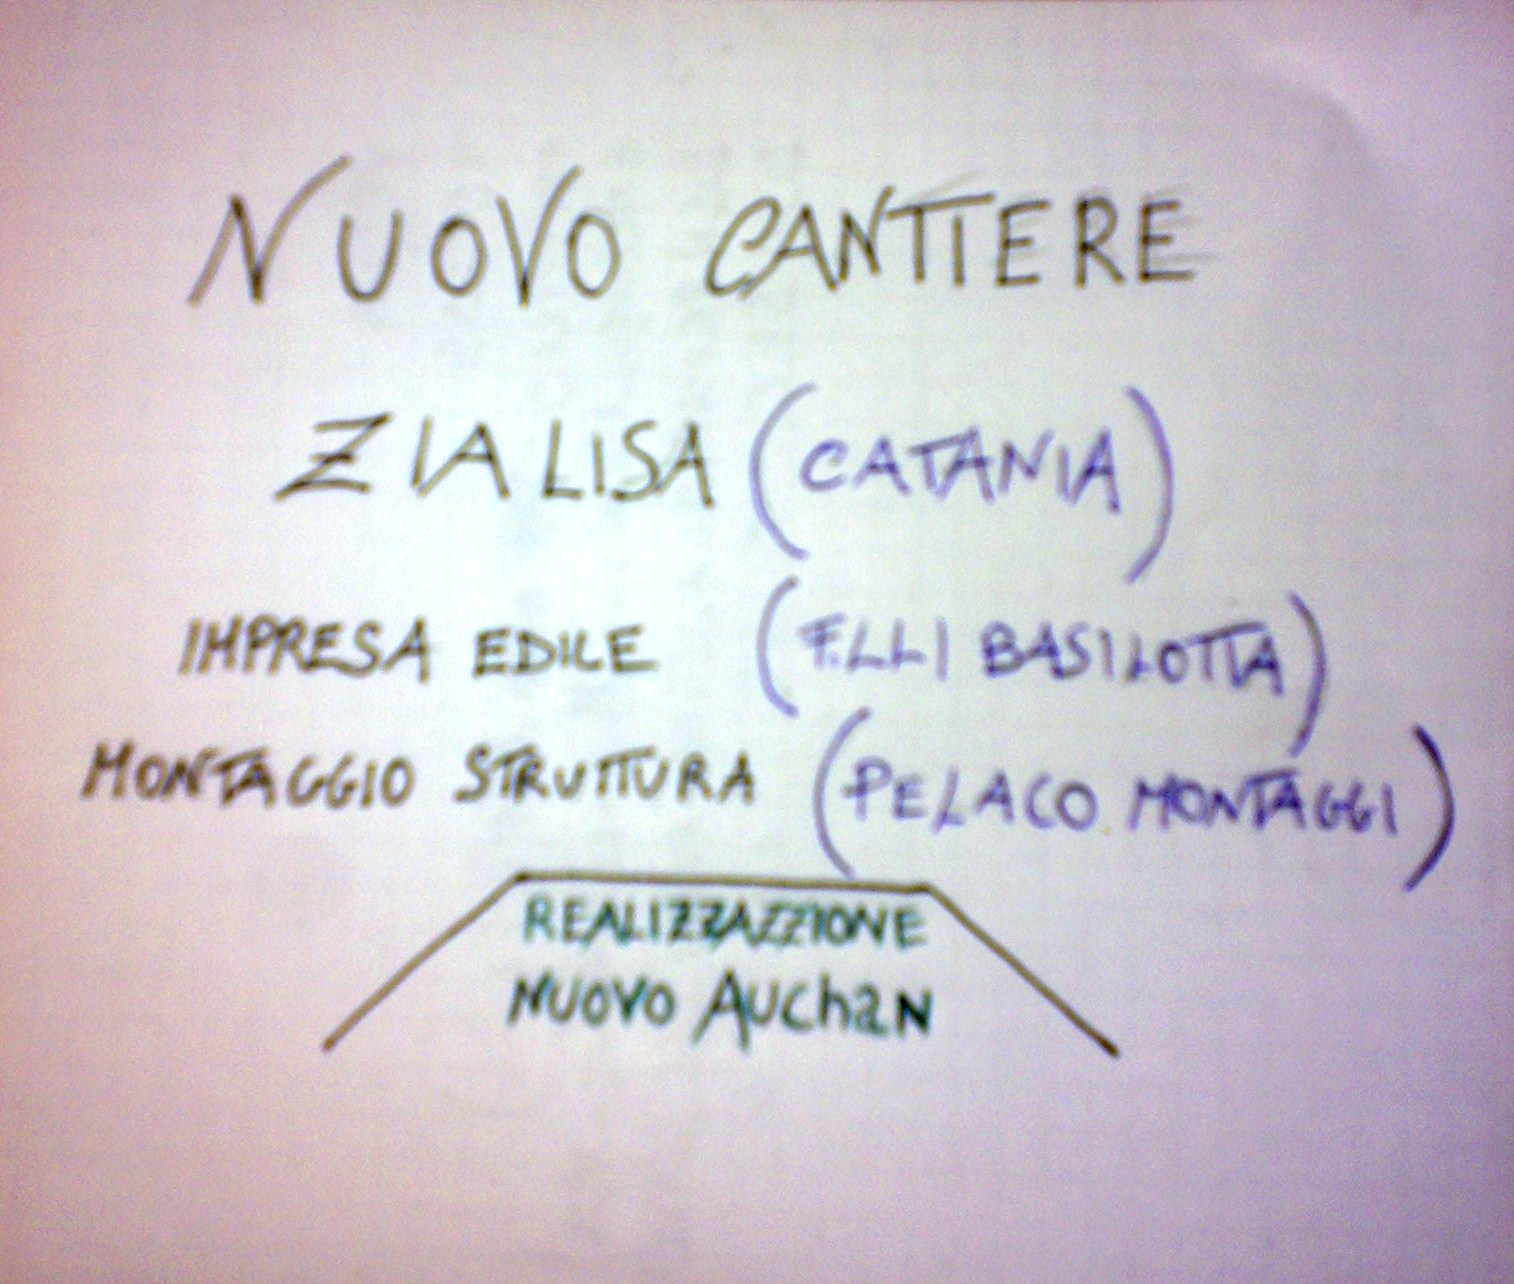 NUOVO CANTIERE
ZIA LISA (CATANIA)
IMPRESA EDILE (F.LLI BASILOTTA)
MONTAGGIO STRUTTURA (PELACO MONTAGGI)
REALIZZAZZIONE
NUOVO AUChaN